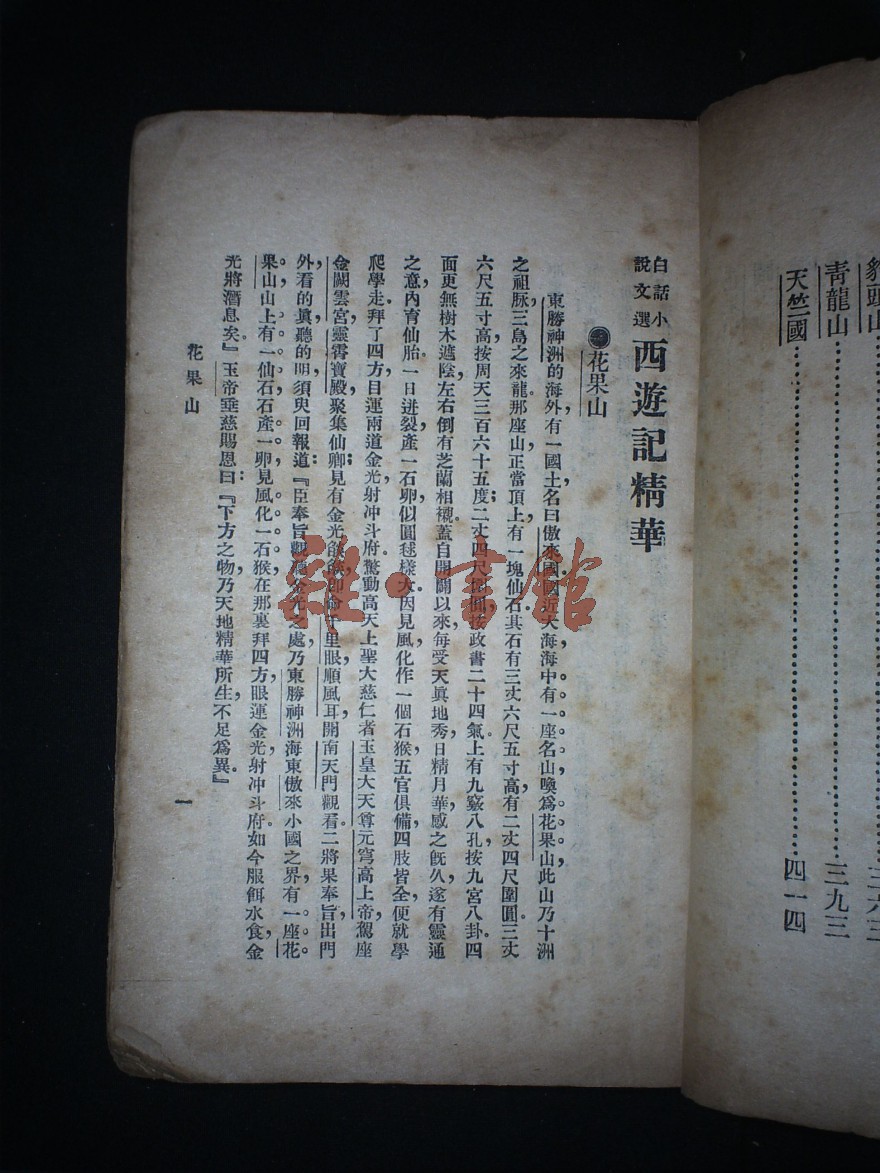 豹頭山……………三六三
青龍山……………三九三
天竺國……………四一四
白話小說文選 西遊記精華
㊀花果山
東勝神洲的海外有一國土名曰傲來國國近大海海中有一座名山喚爲花果山此山乃十洲
之祖脉三島之來龍那座山正當頂上有一塊仙石其石有三丈六尺五寸高有二丈四尺圍圓三丈
六尺五寸高按周天三百六十五度；二丈四尺圍圓按政書二十四氣。上有九竅八孔按九宮八卦。四
面更無樹木遮陰左右倒有芝蘭相襯。蓋自開闢以來，每受天眞地秀日精月華感之旣久遂有靈通
之意內育仙胎一日迸裂產一石卵似圓毬樣大。因見風化作一個石猴五官俱備四肢皆全便就學
爬學走。拜了四方目運兩道金光射冲斗府驚動高天上聖大慈仁者玉皇大天尊元穹高上帝，駕座
金闕雲宮靈霄寶殿聚集仙卿見有金光燄燄卽命千里眼順風耳開南天門觀看。二將果奉旨出門
外，看的眞聽的明須臾回報道：『臣奉旨觀聽金光之處乃東勝神洲海東傲來小國之界有一座花
果山山上有一仙石石產一卵見風化一石猴在那裏拜四方眼運金光射冲斗府。如今服餌水食，金
光將潛息矣。』玉帝垂慈賜恩曰：『下方之物乃天地精華所生，不足爲異。』
花果山
一
雜·書館